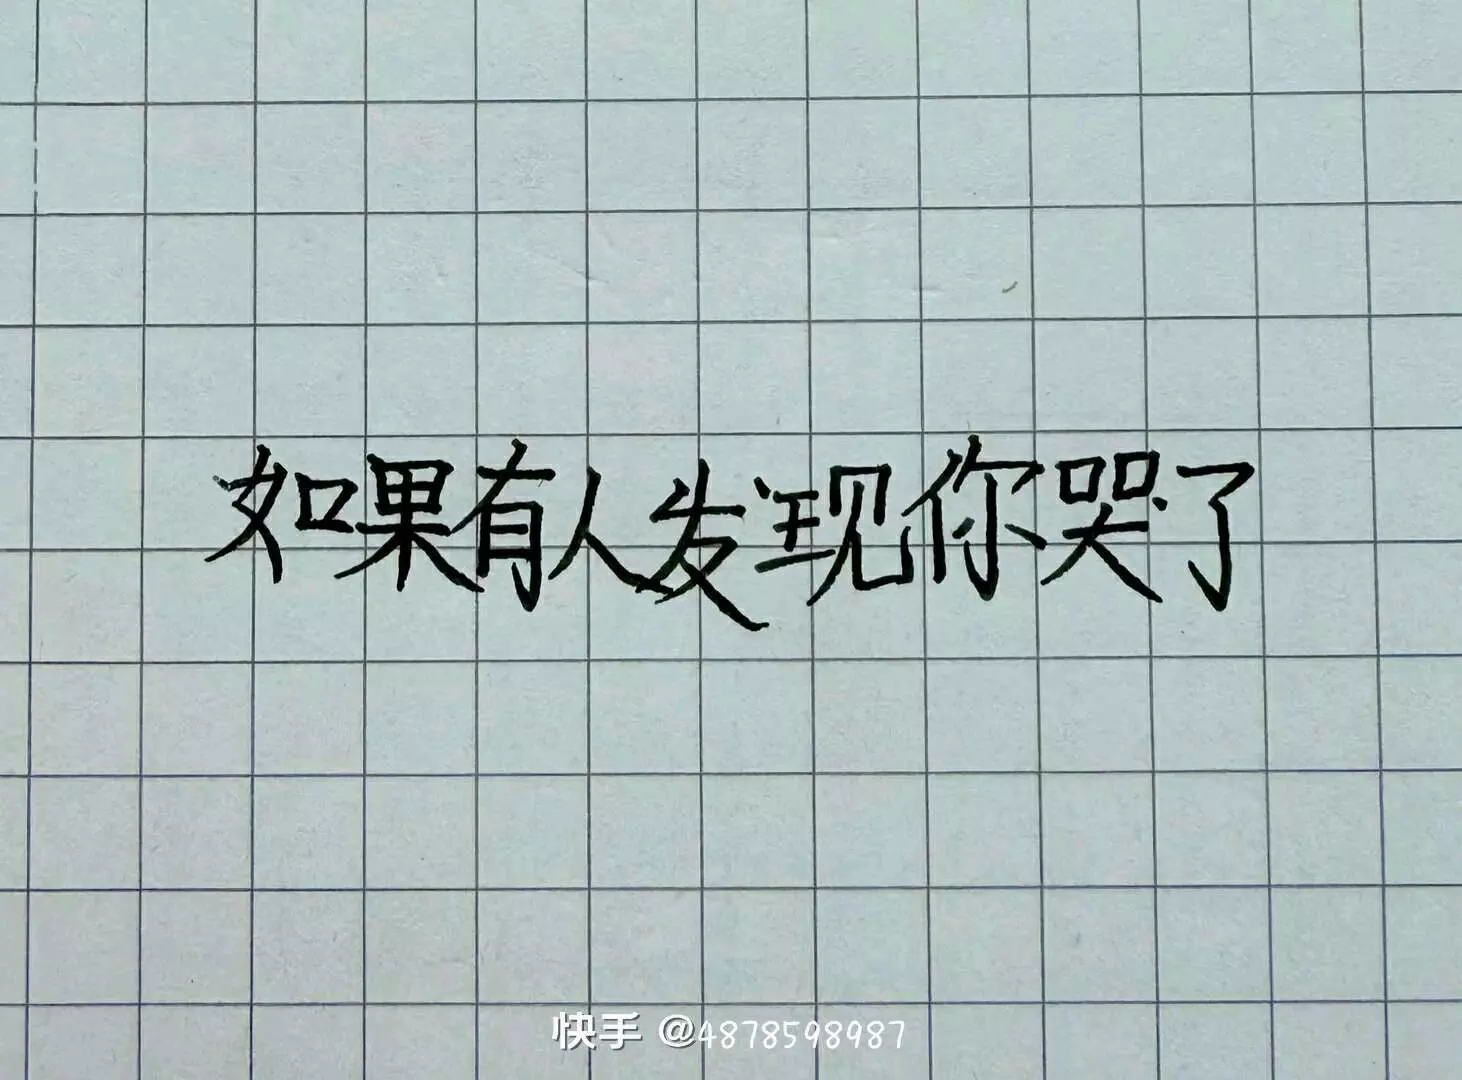 如果有人发现你哭了
快手 @4878598987